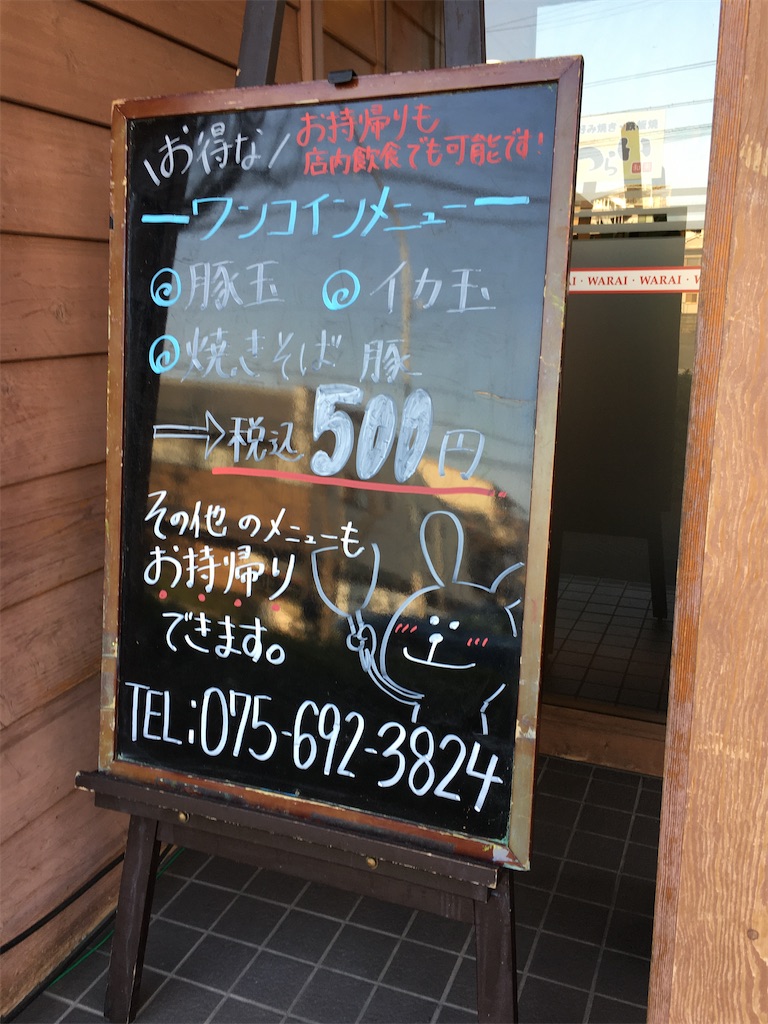 お得な
お持帰りも
店内飲食でも可能です!
ワンコインメニュー
豚玉 イカ玉
焼きそば 豚
税込500円
その他のメニューも
お持帰り
できます。
TEL:075-692-3824
WARAI・WARAI・